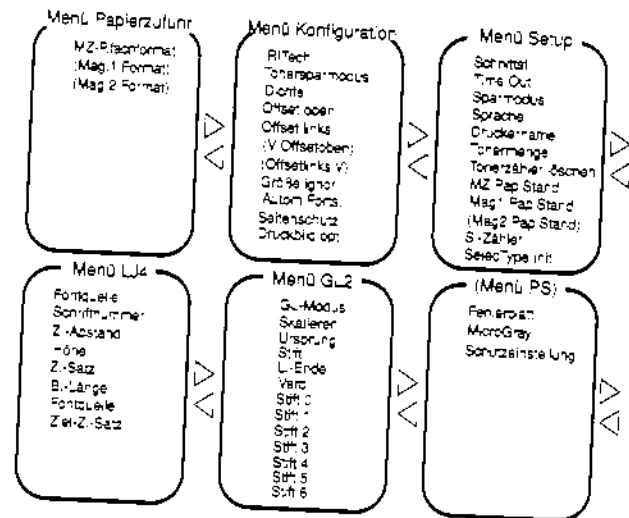 Menü Papierzufuhr
MZ-P.fachformat
(Mag.1 Format)
(Mag.2 Format)
Menü Konfiguration
RITech
Tonersparmodus
Dichte
Offset oben
Offset links
(V Offsetoben)
(Offsetlinks V)
Größe ignor
Autom Forts.
Seitenschutz
Druckbild opt
Menü Setup
Schnittst
Time Out
Sparmodus
Sprache
Druckername
Tonermenge
Tonerzähler löschen
MZ Pap Stand
Mag1 Pap Stand
(Mag2 Pap Stand)
S.-Zähler
SelecType init
Menü LJ4
Fontquelle
Schriftnummer
Z.-Abstand
Höhe
Z.-Satz
B.-Länge
Fontquelle
Ziel-Z.-Satz
Menü GL2
GL-Modus
Skalieren
Ursprung
Stift
L.-Ende
Verb
Stift 0
Stift 1
Stift 2
Stift 3
Stift 4
Stift 5
Stift 6
(Menü PS)
Fehlerblatt
MicroGray
Schutzeinstellung